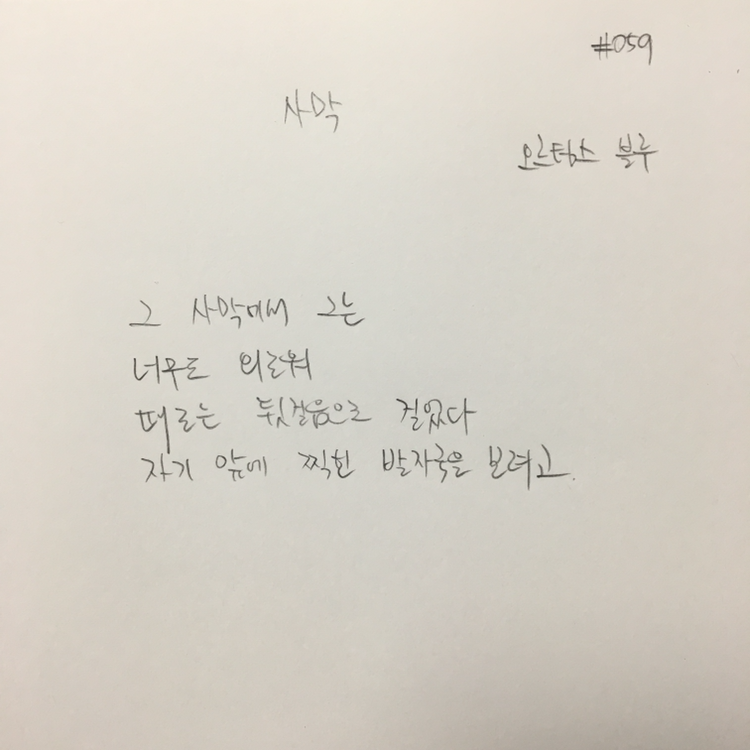 #059
사막
오르텅스 블루
그 사막에서 그는
너무도 외로워
때로는 뒷걸음으로 걸었다
자기 앞에 찍힌 발자국을 보려고.